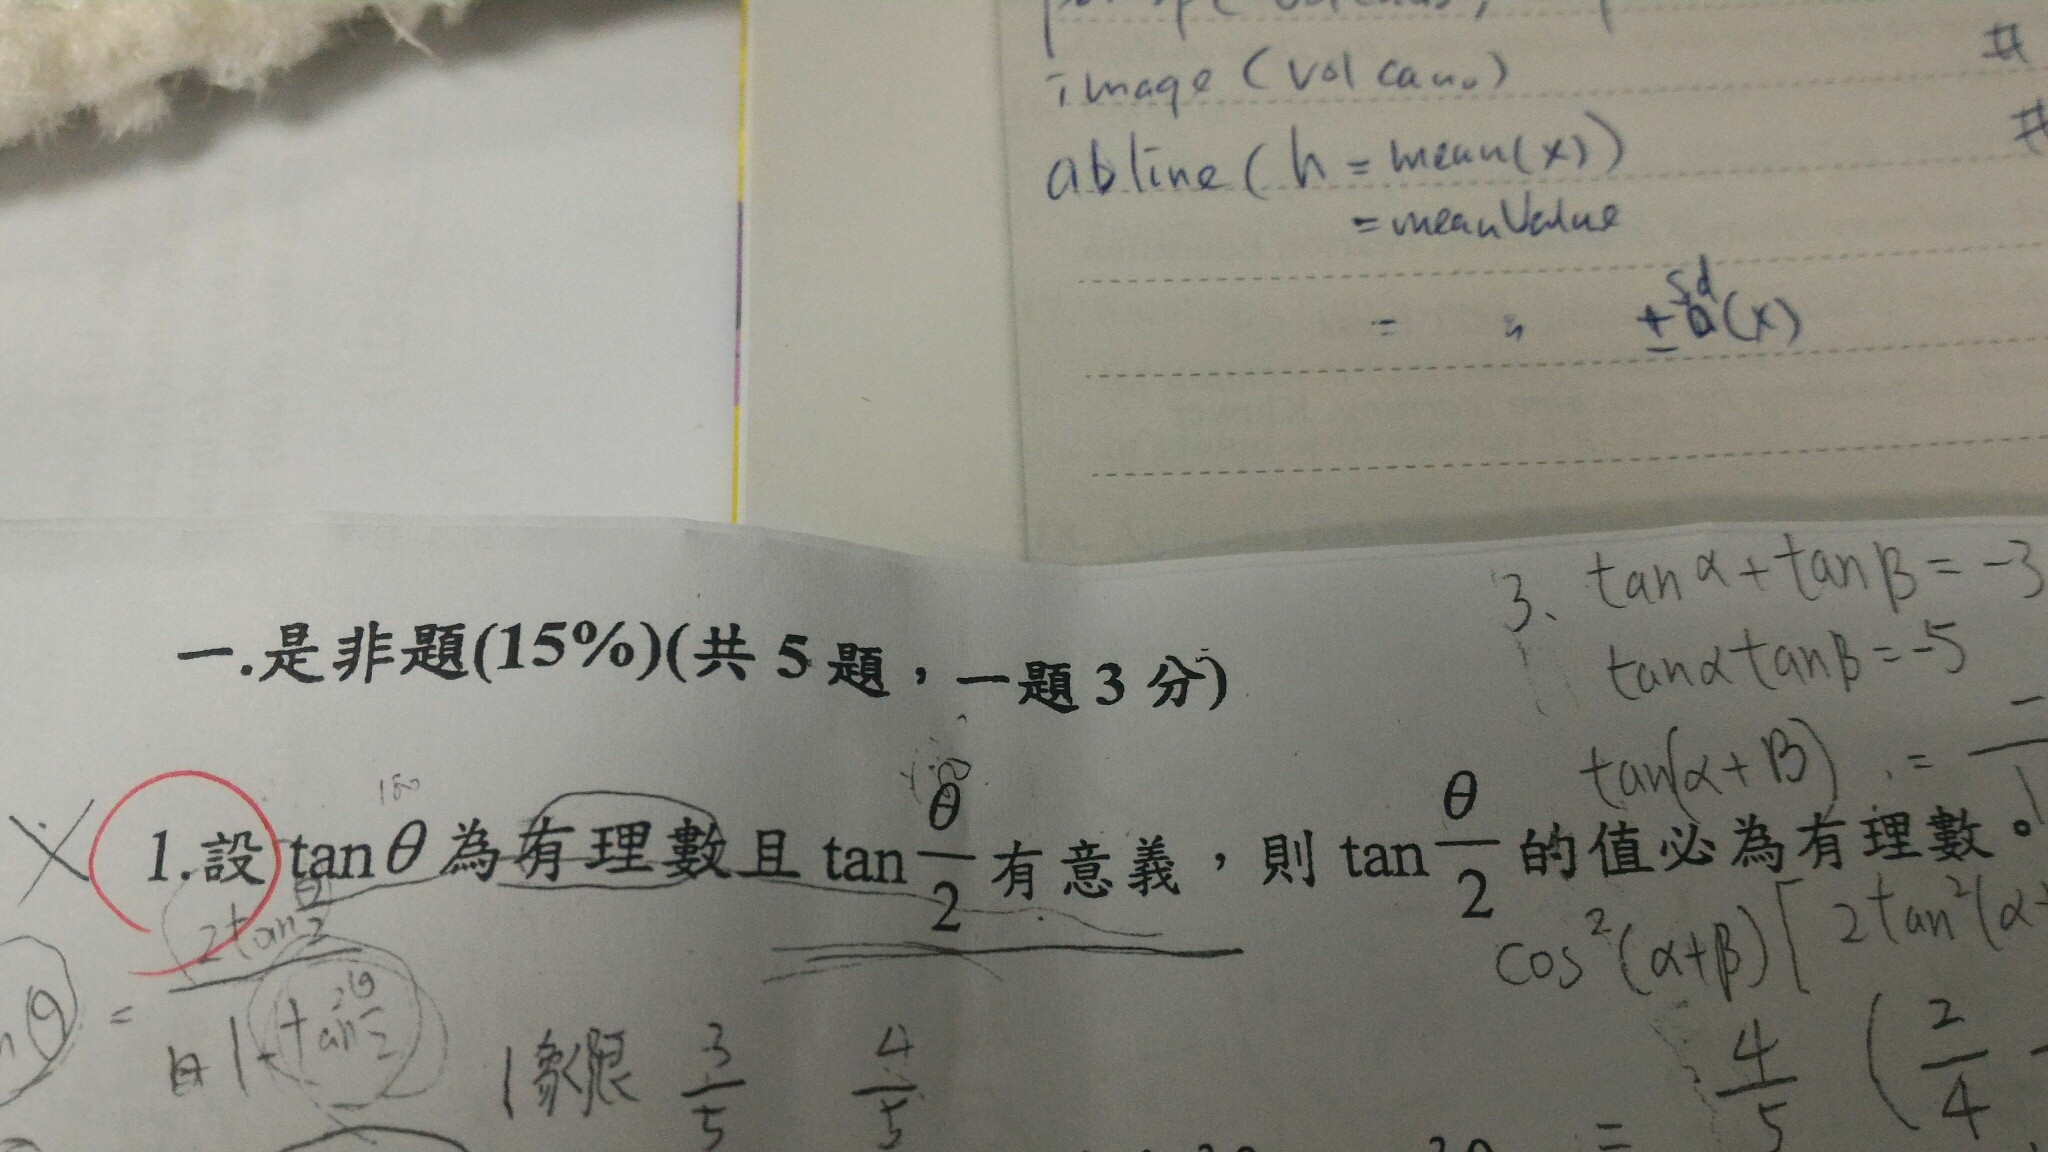 image (volcano)
#
abline ( h = mean(x))
#
= meanValue
= " ± sd(x)
一.是非題(15%)(共 5 題，一題 3 分)
3. tan α + tan β = -3
tan α tan β = -5
tan(α + β) =
180
1.設 tan θ 為有理數且 tan θ/2 有意義，則 tan θ/2 的值必為有理數。
= 2tan θ/2
1 - tan² θ/2
cos²(α+β) [ 2tan²(α+
1象限 3/5 4/5
= 4/5 ( 2/4 -